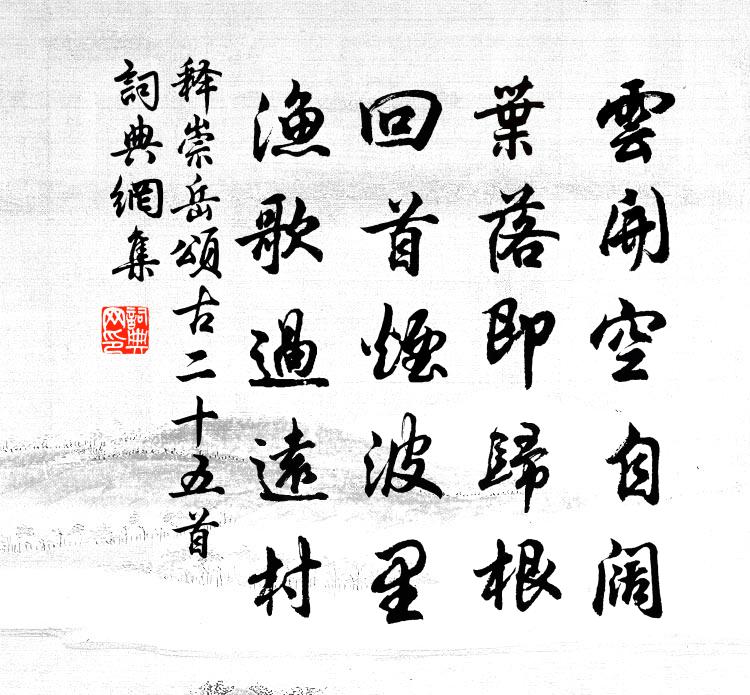 雲開空自阔
葉落即歸根
回首煙波里
漁歌過遠村
释崇岳頌古二十五首
詞典網集
詞典網印